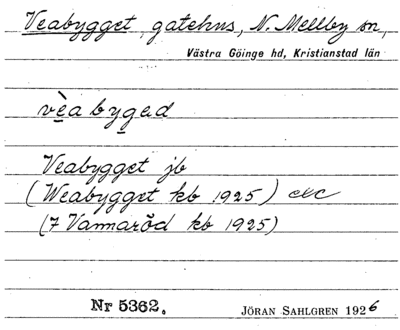 Veabygget, gatehus, N. Mellby sn,
Västra Göinge hd, Kristianstad län
vèa bygad
Veabygget jb
(Weabygget kb 1925) etc
(7 Vannaröd kb 1925)
Nr 5362. JÖRAN SAHLGREN 1926